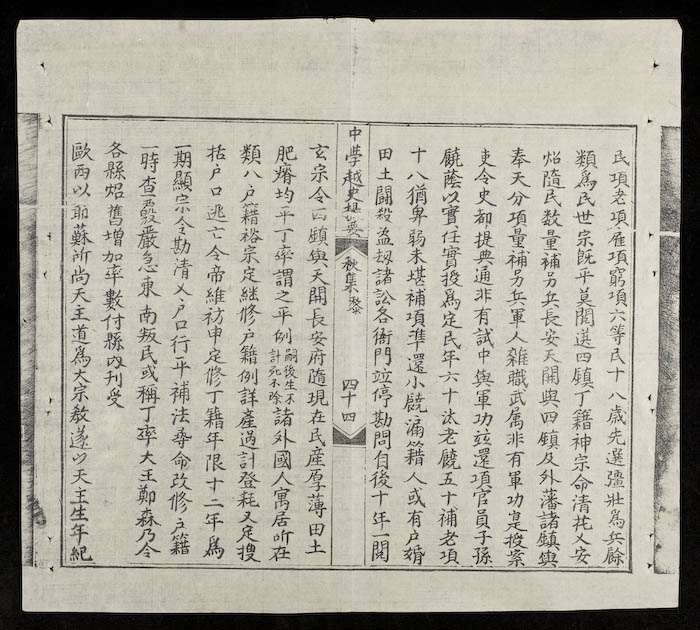 民項老項雇項窮項六等民十八歲先選彊壯為兵餘
類為民世宗既平莫閱選四鎮丁籍神宗命清芘乂安
炤隨民数量補另兵長安天関與四鎮及外藩諸鎮與
奉天分項量補另兵軍人雜職武属非有軍功寔授案
吏令史却提典通非有試中與軍功竝還項官員子孫
饒蔭以實任實授為定民年六十汰老饒五十補老項
十八猶卑弱未堪補項準還小饒漏籍人或有户婚
田土闘殺盗刼諸訟各衙門竝停勘問自後十年一閱
中學越史撮要
秋集黎
四十四
玄宗令四鎮與天開長安府隨現在民産厚薄田土
肥瘠均平丁率謂之平例嗣後生不計死不除諸外國人寓居所在
類八户籍裕宗定継修户籍例詳産過計登耗又定搜
括户口逃亡令帝維祊申定修丁籍年限十二年為
一期顯宗令勘清乂户口行平補法尋命改修立籍
一時查覈嚴急東南叛民或稱丁率大王鄭森乃令
各縣炤舊增加率數付縣内刊受
歐西以耶蘇所尚天主道為大宗教遂以天主生年紀